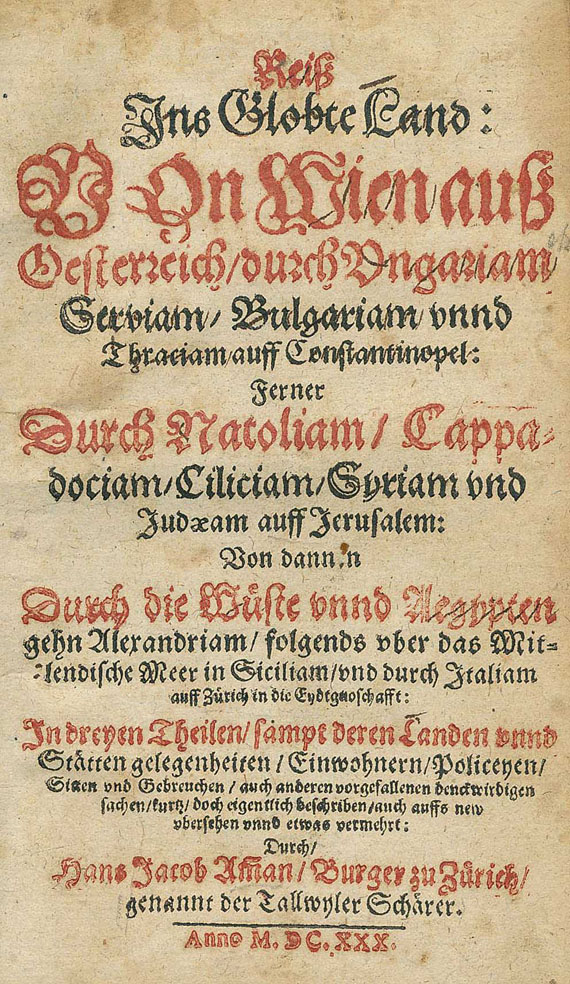 Reiß
Ins Globte Land:
VOn Wien auß
Oesterreich/durch Vngariam
Serviam/ Bulgariam vnnd
Thraciam/auff Constantinopel:
Ferner
Durch Natoliam/ Cappa-
dociam/Ciliciam/Syriam vnd
Judæam auff Jerusalem:
Von dannen
Durch die Wüste vnnd Aegypten
gehn Alexandriam/ folgends vber das Mit-
lendische Meer in Siciliam/vnd durch Italiam
auff Zürich in die Eydtgnoschafft:
In dreyen Theilen/ sampt deren Landen vnnd
Stätten gelegenheiten / Einwohnern/Policeyen/
Sitten vnd Gebreuchen / auch anderen vorgefallenen denckwirdigen
sachen/kurtz/ doch eigentlich beschriben/auch auffs new
vbersehen vnnd etwas vermehrt:
Durch/
Hans Jacob Am̃an/ Burger zu Zürich/
genannt der Tallwyler Schärer.
Anno M. DC. XXX.